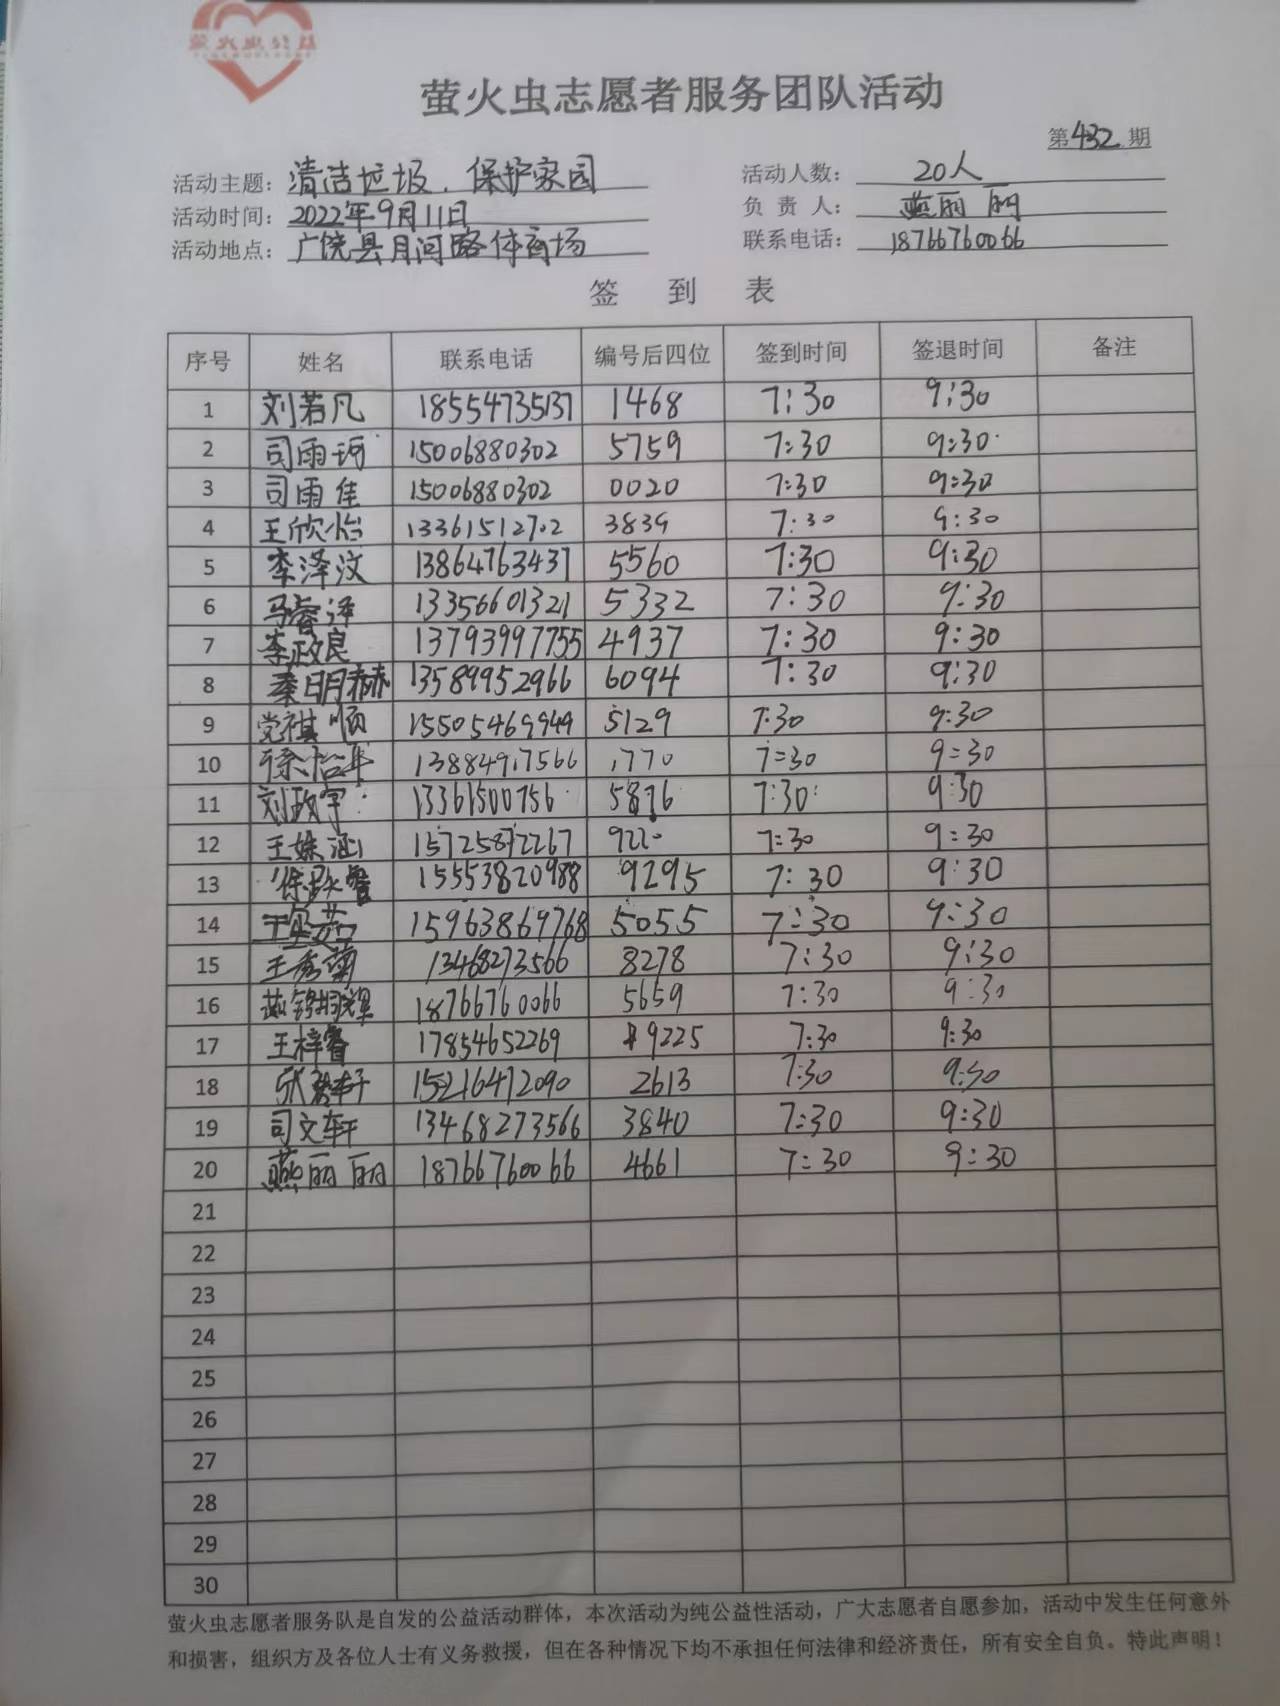 萤火虫公益
萤火虫志愿者服务团队活动
第432期
活动主题：清洁垃圾，保护家园 活动人数：20人
活动时间：2022年9月11日 负责人：燕丽丽
活动地点：广饶县月河路体育场 联系电话：18766760066
签到表
序号 姓名 联系电话 编号后四位 签到时间 签退时间 备注
1 刘若凡 18554735137 1468 7:30 9:30
2 司雨珂 15006880302 5759 7:30 9:30
3 司雨佳 15006880302 0020 7:30 9:30
4 王欣怡 13361512702 3839 7:30 9:30
5 李泽汶 13864763437 5560 7:30 9:30
6 马睿泽 13356601321 5332 7:30 9:30
7 李政良 13793997755 4937 7:30 9:30
8 秦明赫 13589952966 6094 7:30 9:30
9 党祺顺 15505469949 5129 7:30 9:30
10 徐怡 13884917566 1770 7:30 9:30
11 刘政宇 13361500756 5876 7:30 9:30
12 王姝涵 15725872267 7:30 9:30
13 徐 15553820988 9295 7:30 9:30
14 15963869768 5055 7:30 9:30
15 王秀菊 13468273566 8278 7:30 9:30
16 18766760066 5659 7:30 9:30
17 王梓睿 17854652269 9225 7:30 9:30
18 轩 15216472090 2613 7:30 9:30
19 司文轩 13468273566 3840 7:30 9:30
20 燕丽丽 18766760066 4661 7:30 9:30
21
22
23
24
25
26
27
28
29
30
萤火虫志愿者服务队是自发的公益活动群体，本次活动为纯公益性活动，广大志愿者自愿参加，活动中发生任何意外
和损害，组织方及各位人士有义务救援，但在各种情况下均不承担任何法律和经济责任，所有安全自负。特此声明！